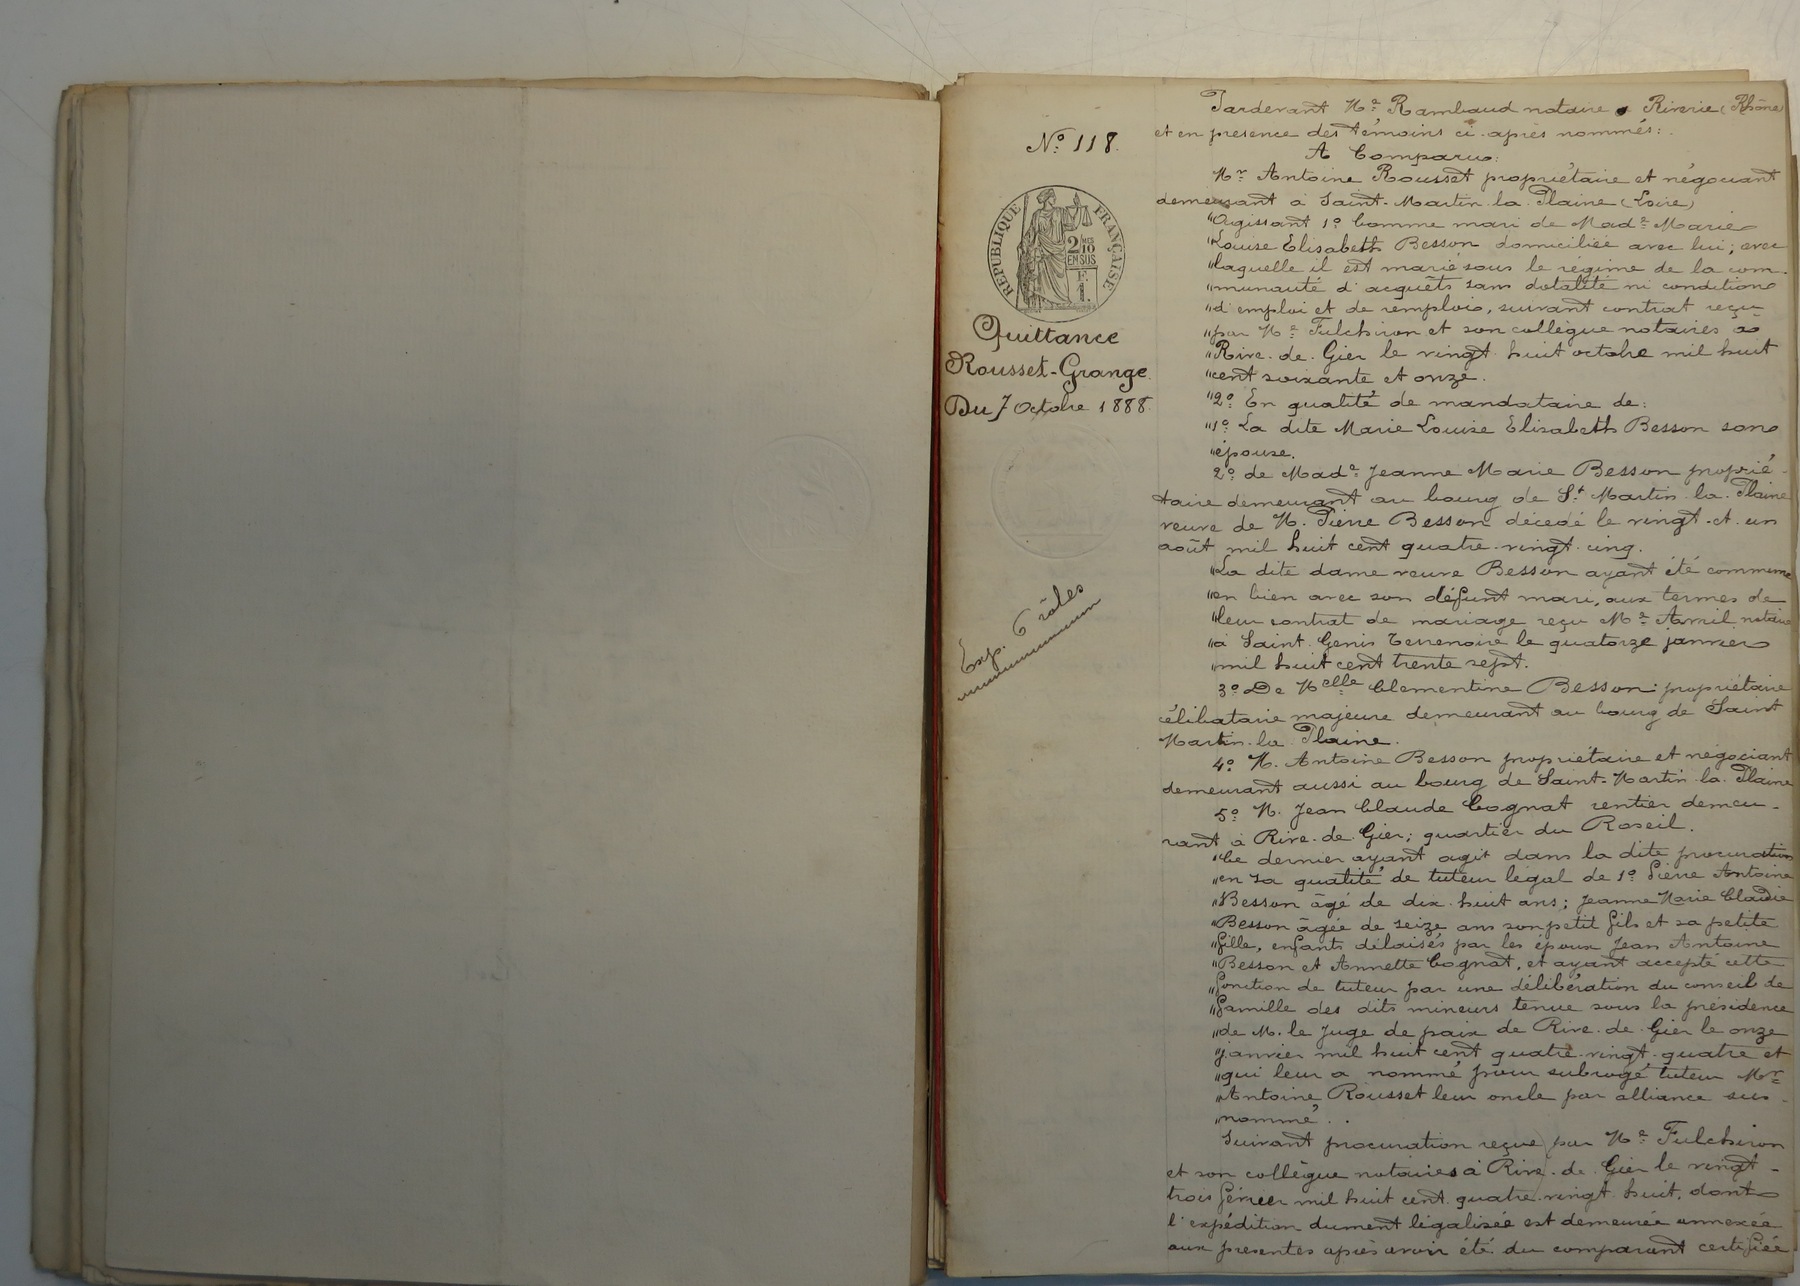 N° 118.
RÉPUBLIQUE FRANÇAISE
2/10 MES
EN SUS
F.
1.
Quittance
Rousset-Grange.
Du 7 Octobre 1888.
Exp. 6 rôles
Pardevant Me Rambaud notaire à Riverie (Rhône)
et en présence des témoins ci-après nommés:
A Comparu:
Mr Antoine Rousset propriétaire et négociant
demeurant à Saint-Martin-la-Plaine (Loire)
"Agissant 1° Comme mari de Made Marie
"Louise Elisabeth Besson domiciliée avec lui; avec
"laquelle il est marié sous le régime de la com-
"munauté d'acquêts sans dotalité ni condition
"d'emploi et de remploi, suivant contrat reçu
"par Me Fulchiron et son collègue notaires à
"Rive-de-Gier le vingt-huit octobre mil huit
"cent soixante et onze.
"2° En qualité de mandataire de:
"1° La dite Marie Louise Elisabeth Besson son
"épouse.
2° de Made Jeanne Marie Besson proprié-
taire demeurant au bourg de St Martin-la-Plaine
veuve de M. Pierre Besson décédé le vingt-et-un
août mil huit cent quatre-vingt-cinq.
"La dite dame veuve Besson ayant été commune
"en bien avec son défunt mari, aux termes de
"leur contrat de mariage reçu Me Amil notaire
"à Saint-Genis Terrenoire le quatorze janvier
"mil huit cent trente sept.
3° De Melle Clementine Besson propriétaire
célibataire majeure demeurant au bourg de Saint
Martin-la-Plaine.
4° M. Antoine Besson propriétaire et négociant
demeurant aussi au bourg de Saint-Martin-la-Plaine
5° M. Jean Claude Cognat rentier demeu-
rant à Rive-de-Gier; quartier du Roseil.
"Ce dernier ayant agit dans la dite procuration
"en sa qualité de tuteur légal de 1° Pierre Antoine
"Besson âgé de dix-huit ans; Jeanne Marie Claudie
"Besson âgée de seize ans son petit fils et sa petite
"fille, enfants délaisés par les époux Jean Antoine
"Besson et Annette Cognat, et ayant accepté cette
"fonction de tuteur par une délibération du conseil de
"famille des dits mineurs tenue sous la présidence
"de M. le Juge de paix de Rive-de-Gier le onze
"janvier mil huit cent quatre-vingt-quatre et
"qui leur a nommé pour subrogé tuteur Mr
"Antoine Rousset leur oncle par alliance sus-
"nommé.
Suivant procuration reçue par Me Fulchiron
et son collègue notaires à Rive-de-Gier le vingt-
trois février mil huit cent quatre-vingt-huit, dont
l'expédition dument légalisée est demeurée annexée
aux présentes après avoir été du comparant certifiée